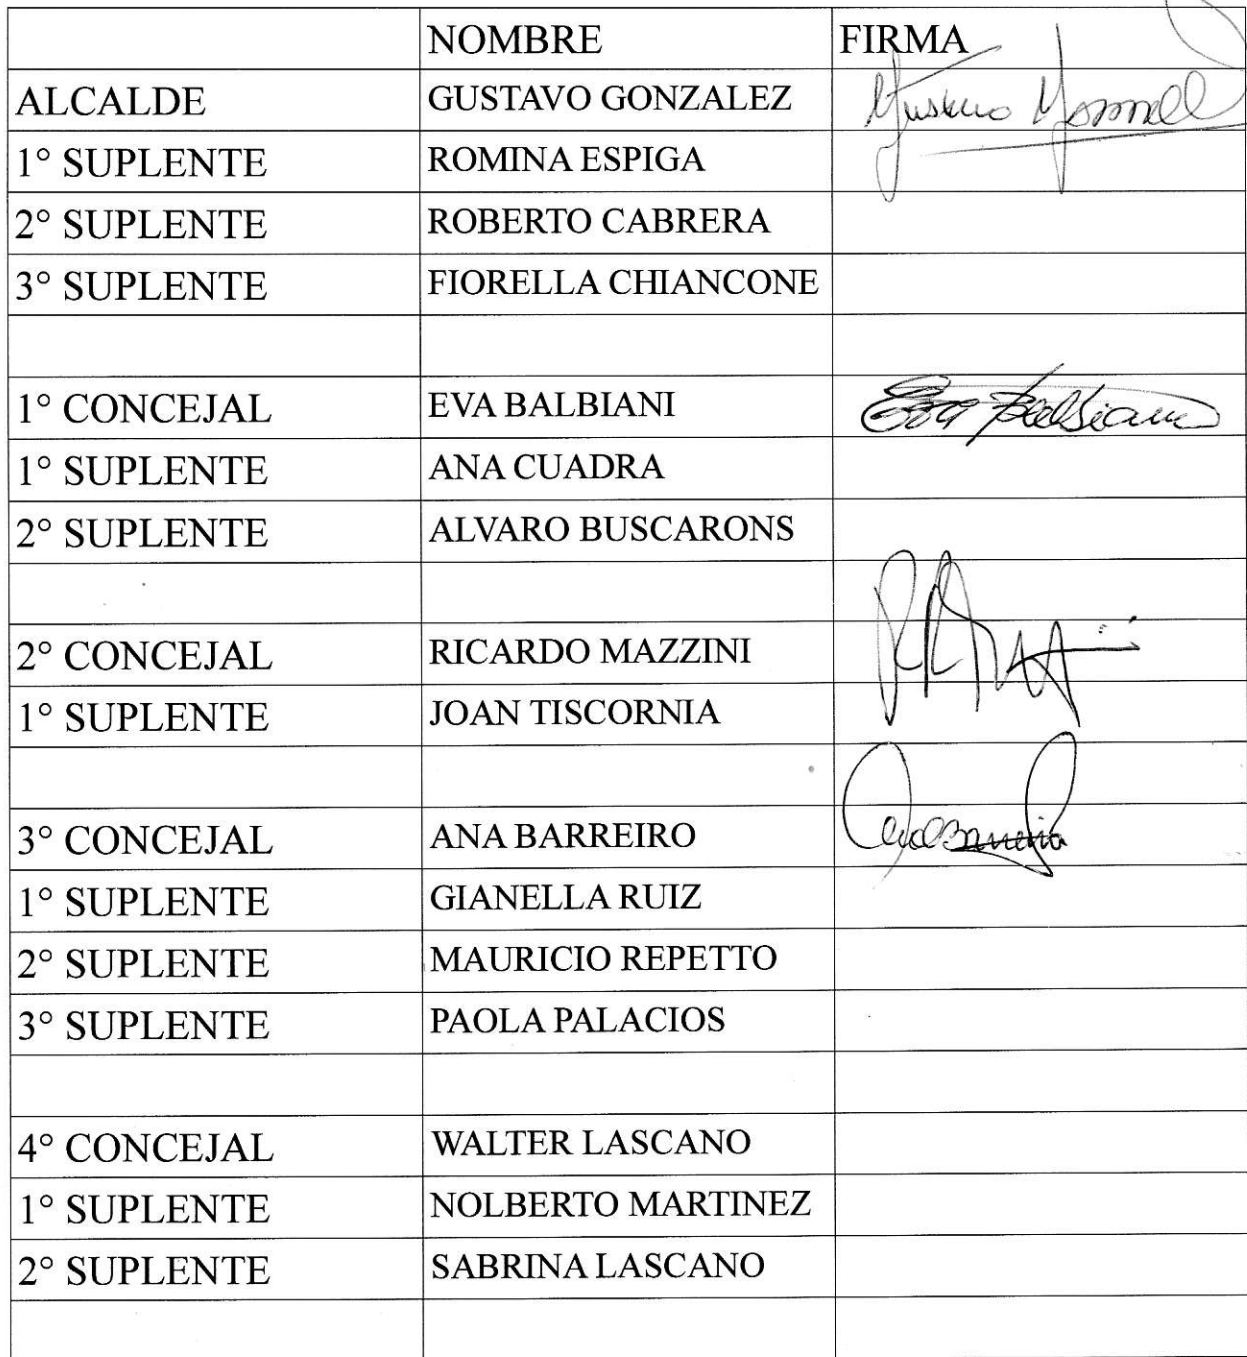 NOMBRE FIRMA
ALCALDE GUSTAVO GONZALEZ
1° SUPLENTE ROMINA ESPIGA
2° SUPLENTE ROBERTO CABRERA
3° SUPLENTE FIORELLA CHIANCONE
1° CONCEJAL EVA BALBIANI Eva Balbiani
1° SUPLENTE ANA CUADRA
2° SUPLENTE ALVARO BUSCARONS
2° CONCEJAL RICARDO MAZZINI
1° SUPLENTE JOAN TISCORNIA
3° CONCEJAL ANA BARREIRO
1° SUPLENTE GIANELLA RUIZ
2° SUPLENTE MAURICIO REPETTO
3° SUPLENTE PAOLA PALACIOS
4° CONCEJAL WALTER LASCANO
1° SUPLENTE NOLBERTO MARTINEZ
2° SUPLENTE SABRINA LASCANO